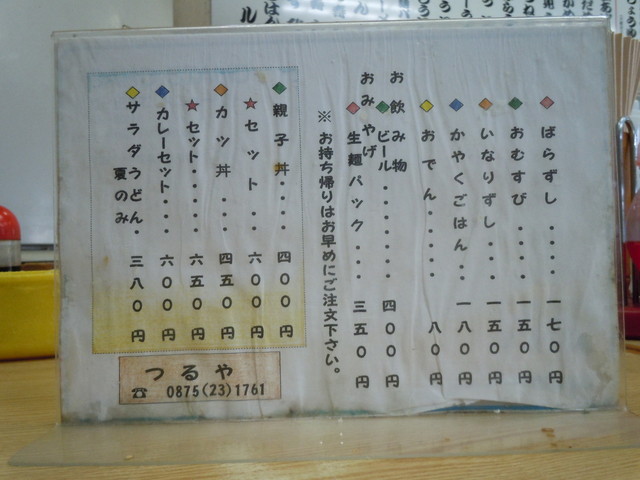 ばらずし・・・・一七〇円
おむすび・・・・一五〇円
いなりずし・・・一五〇円
かやくごはん・・一八〇円
おでん・・・・・八〇円
お飲み物
ビール・・・・・・四〇〇円
おみやげ
生麺パック・・・・三五〇円
※お持ち帰りはお早めにご注文下さい。
親子丼・・・・四〇〇円
セット・・・六〇〇円
カツ丼・・・・四五〇円
セット・・・・・六五〇円
カレーセット・・・六〇〇円
サラダうどん・・三八〇円
夏のみ
つるや
☎ 0875(23)1761